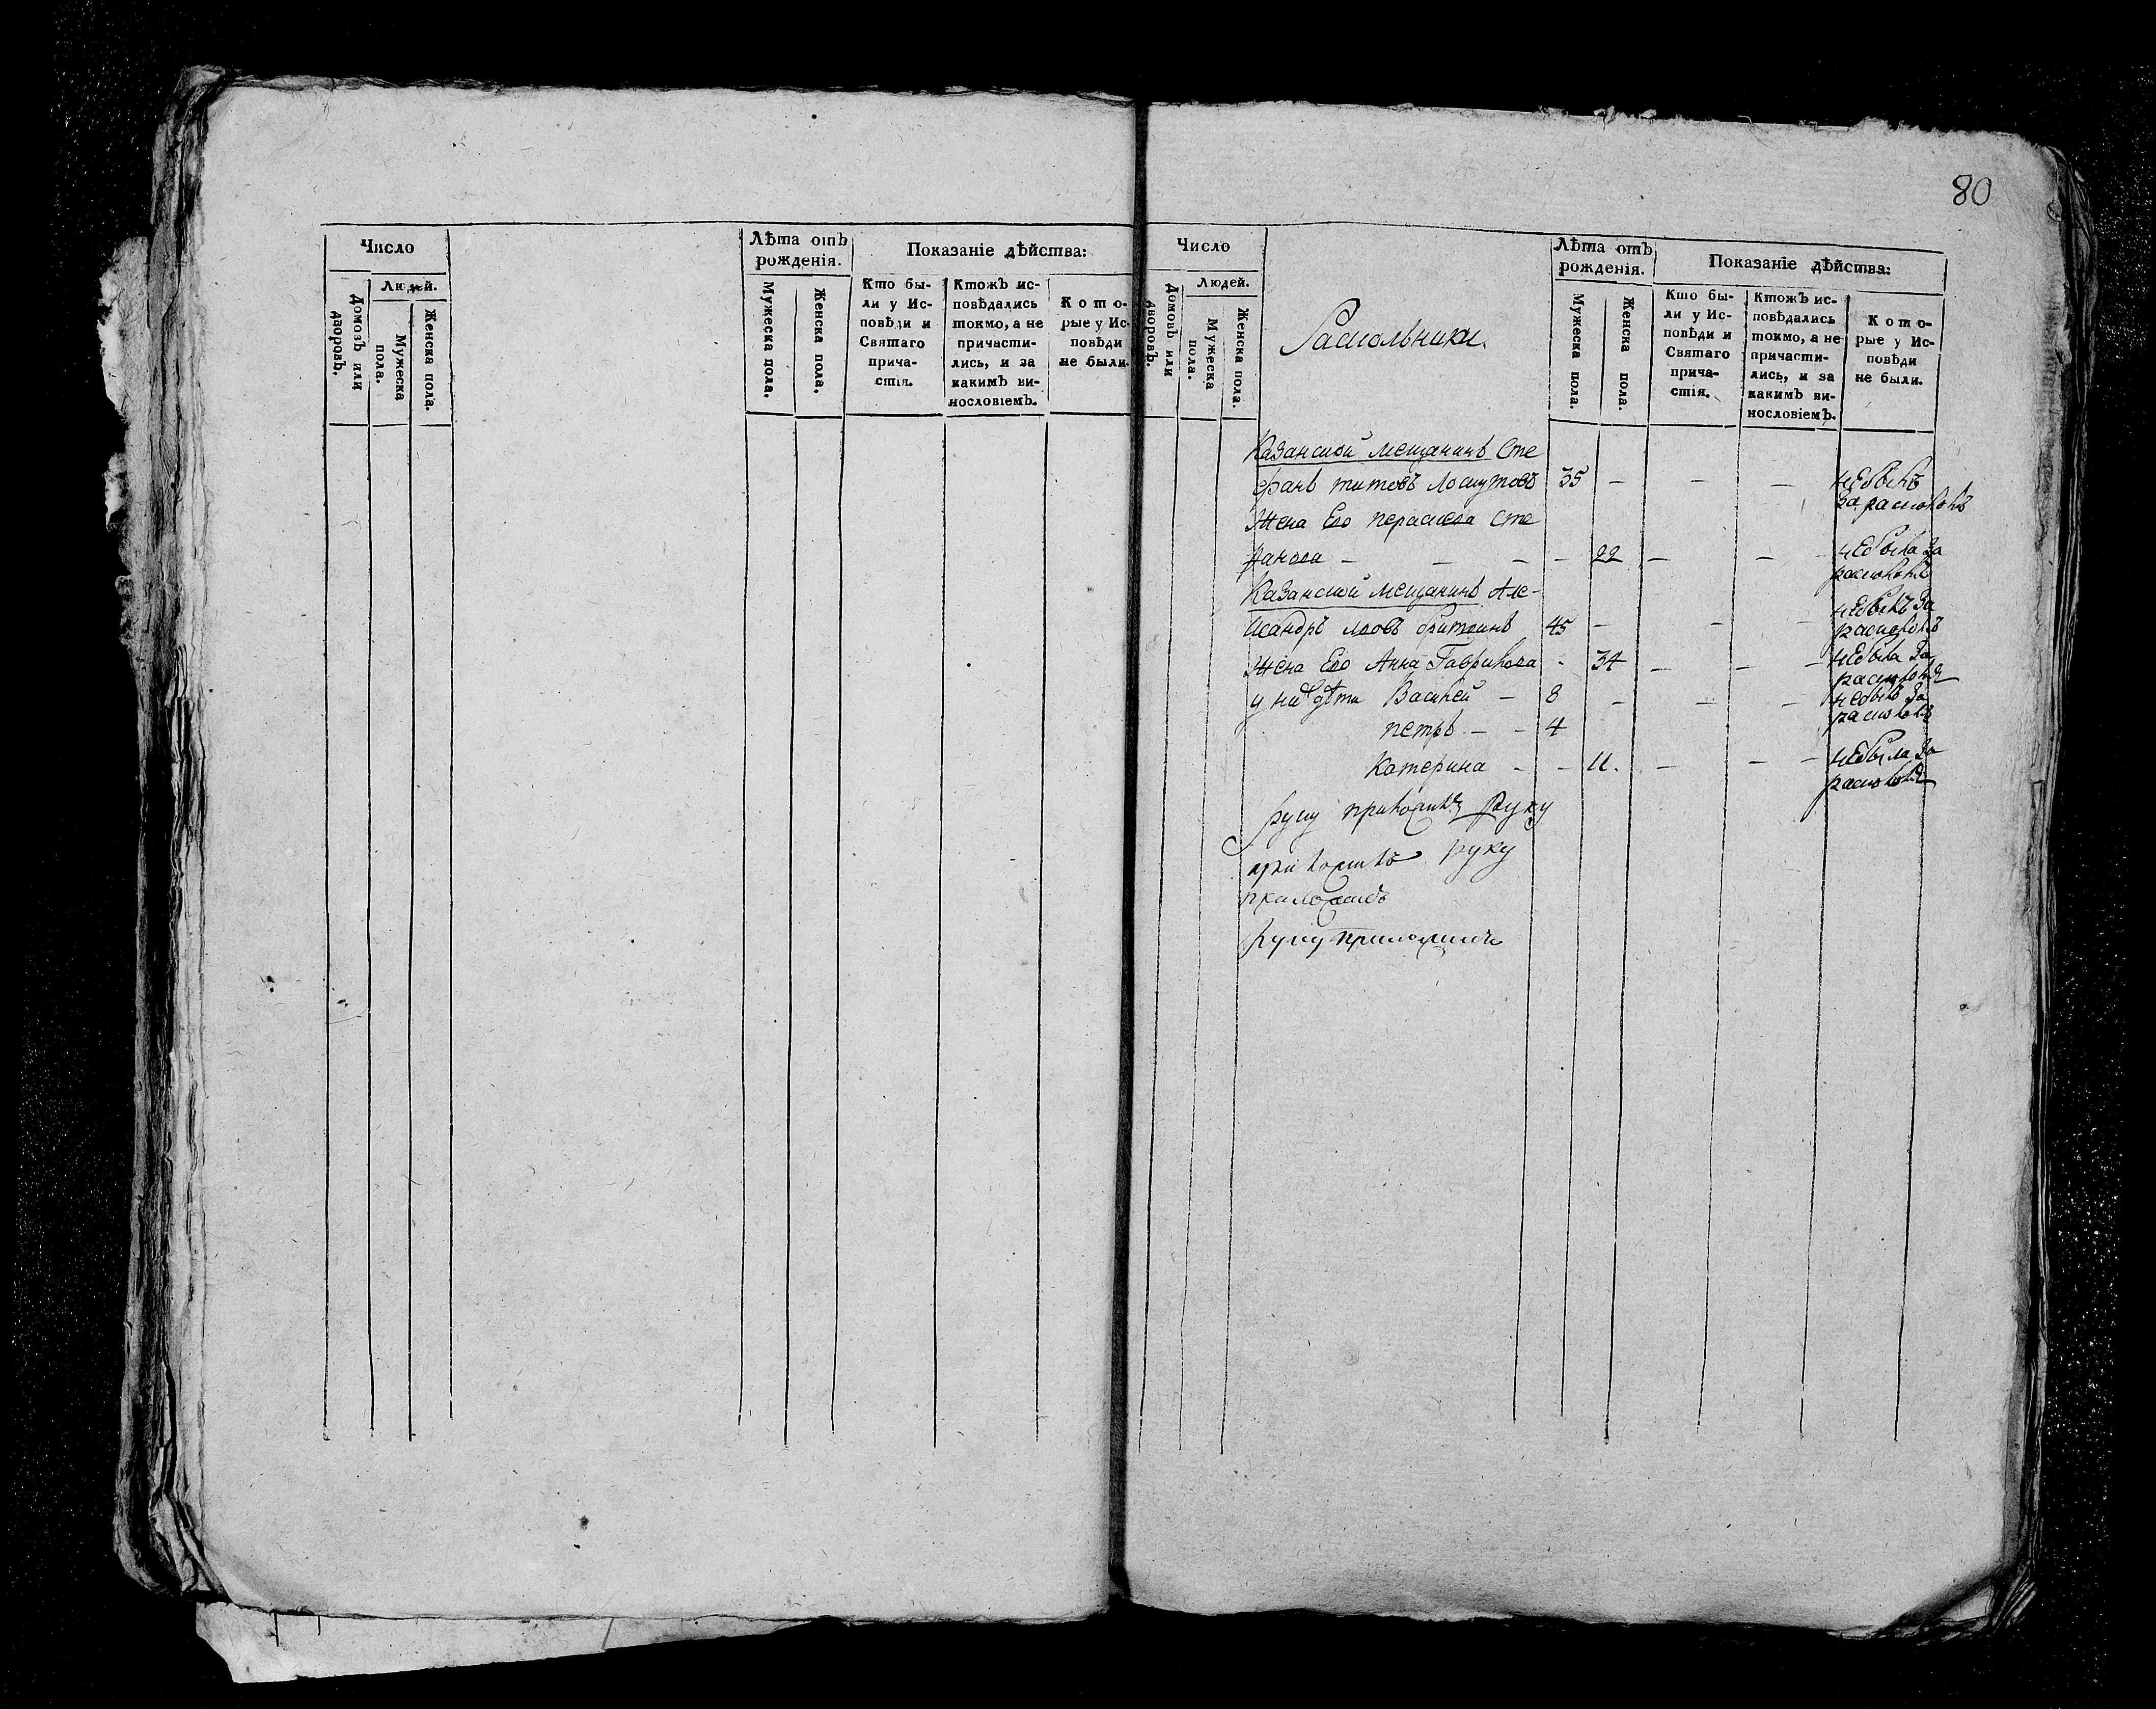 80
Число
Людей.
Домовъ или дворовъ.
Мужеска пола.
Женска пола.
Лѣта отъ
рожденія.
Мужеска пола.
Женска пола.
Показаніе дѣйства:
Кто бы-
ли у Ис-
повѣди и
Святаго
прича-
стія.
Ктожъ ис-
повѣдались
токмо, а не
причасти-
лись, и за
какимъ ви-
нословіемъ.
Кото-
рые у Ис-
повѣди
не были.
Число
Людей.
Домовъ или дворовъ.
Мужеска пола.
Женска пола.
Раскольники.
Лѣта отъ
рожденія.
Мужеска пола.
Женска пола.
Показаніе дѣйства:
Кто бы-
ли у Ис-
повѣди и
Святаго
прича-
стія.
Ктожъ ис-
повѣдались
токмо, а не
причасти-
лись, и за
какимъ ви-
нословіемъ.
Кото-
рые у Ис-
повѣди
не были.
Казанской мещанинъ Сте
фанъ титовъ Лоскутовъ 35 — — — небылъ
за расколомъ
Жена Его параскева Сте
фанова — — — — 22 — — небыла за
расколомъ
Казанской мещанинъ Але-
ксандръ 45 — — — небылъ за
расколомъ
Жена Его Анна Гаврилова - 34 — — — небыла за
расколомъ
у них дѣти Василей — 8 — — — небылъ за
расколомъ
петръ — — 4
Катерина — — 11. — — — небыла за
расколомъ
руку приложилъ Руку
приложилъ руку
приложилъ
руку приложилъ